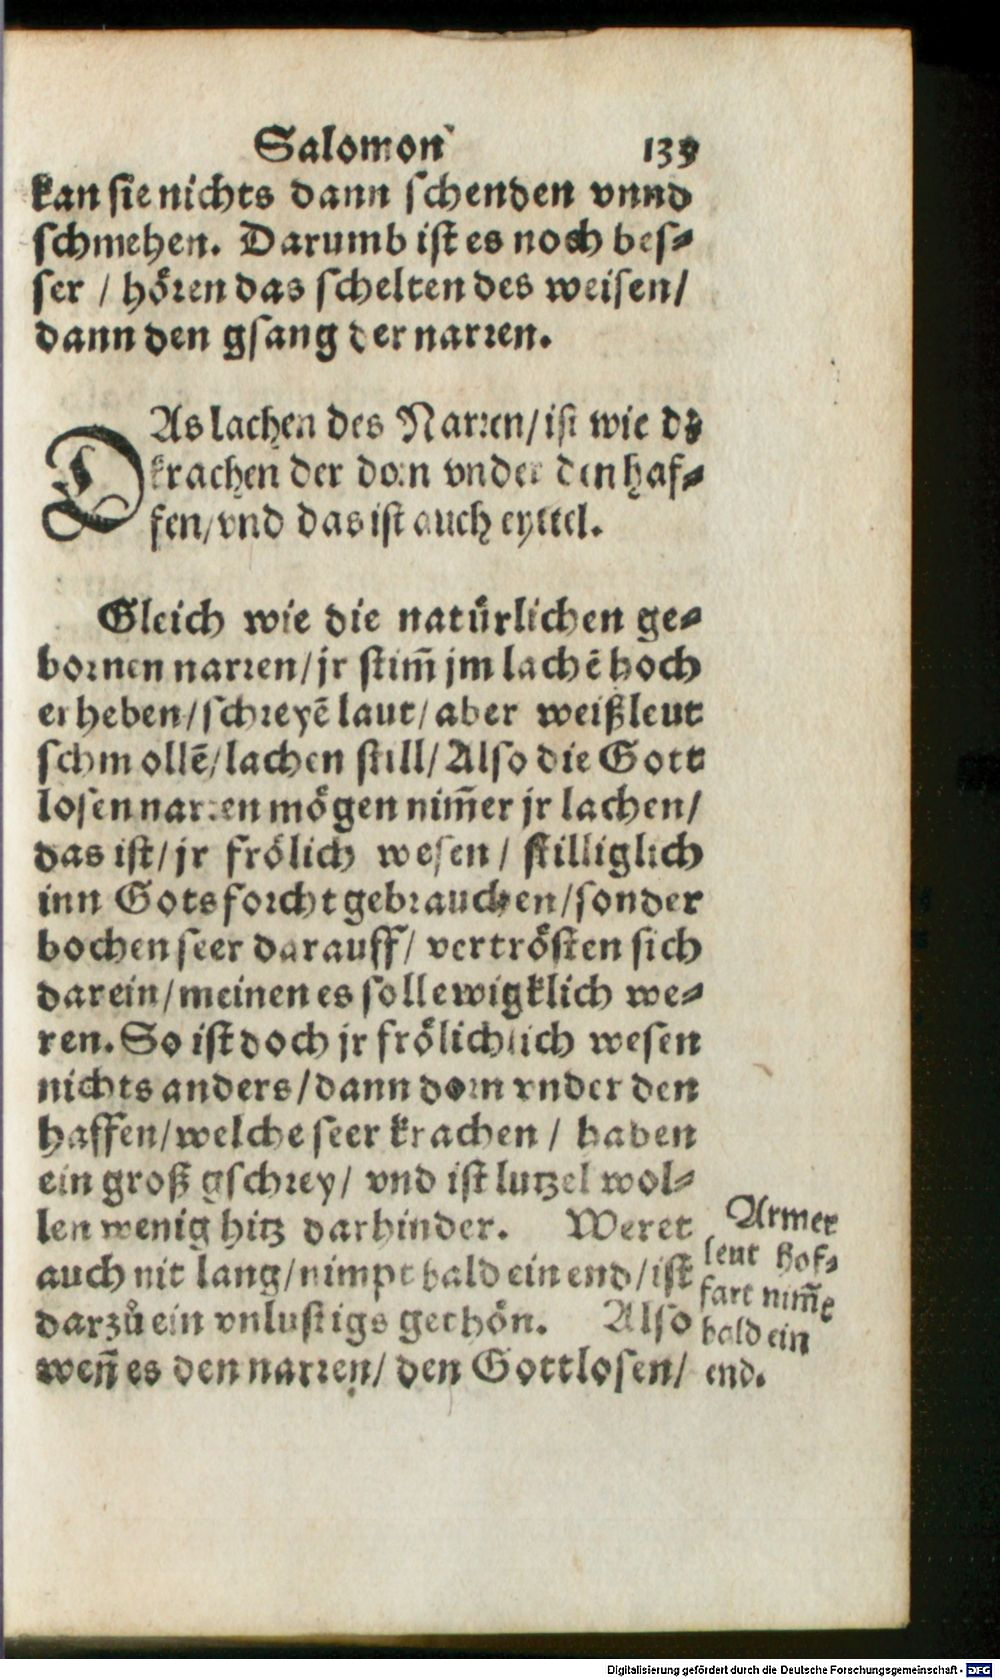 Salomon 139
kan sie nichts dann schenden vnnd
schmehen. Darumb ist es noch bes⸗
ser / hören das schelten des weisen/
dann den gsang der narren.
DAs lachen des Narren/ist wie dz
krachen der dorn vnder den haf⸗
fen/vnd das ist auch eyttel.
Gleich wie die natürlichen ge⸗
bornen narren/jr stim̃ jm lachẽ hoch
erheben/schreyẽ laut/aber weißleut
schmollẽ/lachen still/Also die Gott
losen narren mögen nim̃er jr lachen/
das ist/jr frölich wesen / stilliglich
inn Gotsforcht gebrauchen/sonder
bochen seer darauff/ vertrösten sich
darein/meinen es soll ewigklich we⸗
ren. So ist doch jr frölichlich wesen
nichts anders/dann dorn vnder den
haffen/welche seer krachen / haben
ein groß gschrey/ vnd ist lutzel wol⸗
len wenig hitz darhinder. Weret
auch nit lang/nimpt bald ein end/ist
darzů ein vnlustigs gethön. Also
weñ es den narren/ den Gottlosen/
Armer
leut Hof⸗
fart nim̃t
bald ein
end.
Digitalisierung gefördert durch die Deutsche Forschungsgemeinschaft - DFG